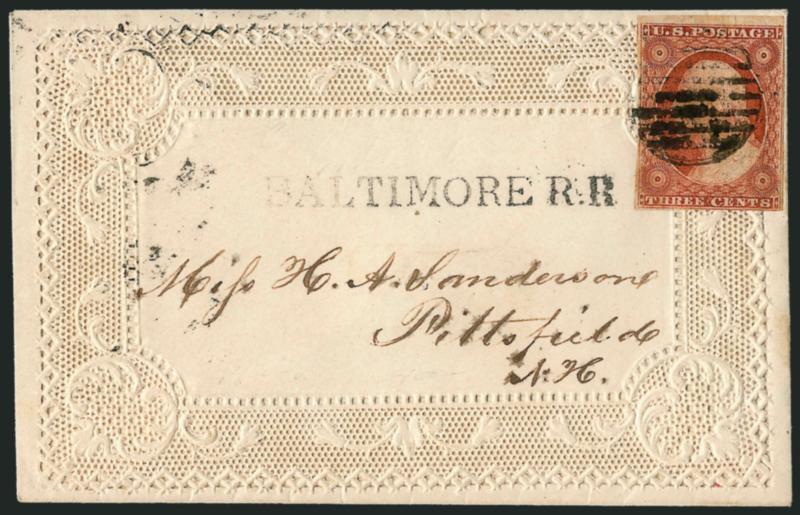 U.S. POSTAGE
THREE CENTS
BALTIMORE R.R
Miss H. A. Sanderson
Pittsfield
N.H.